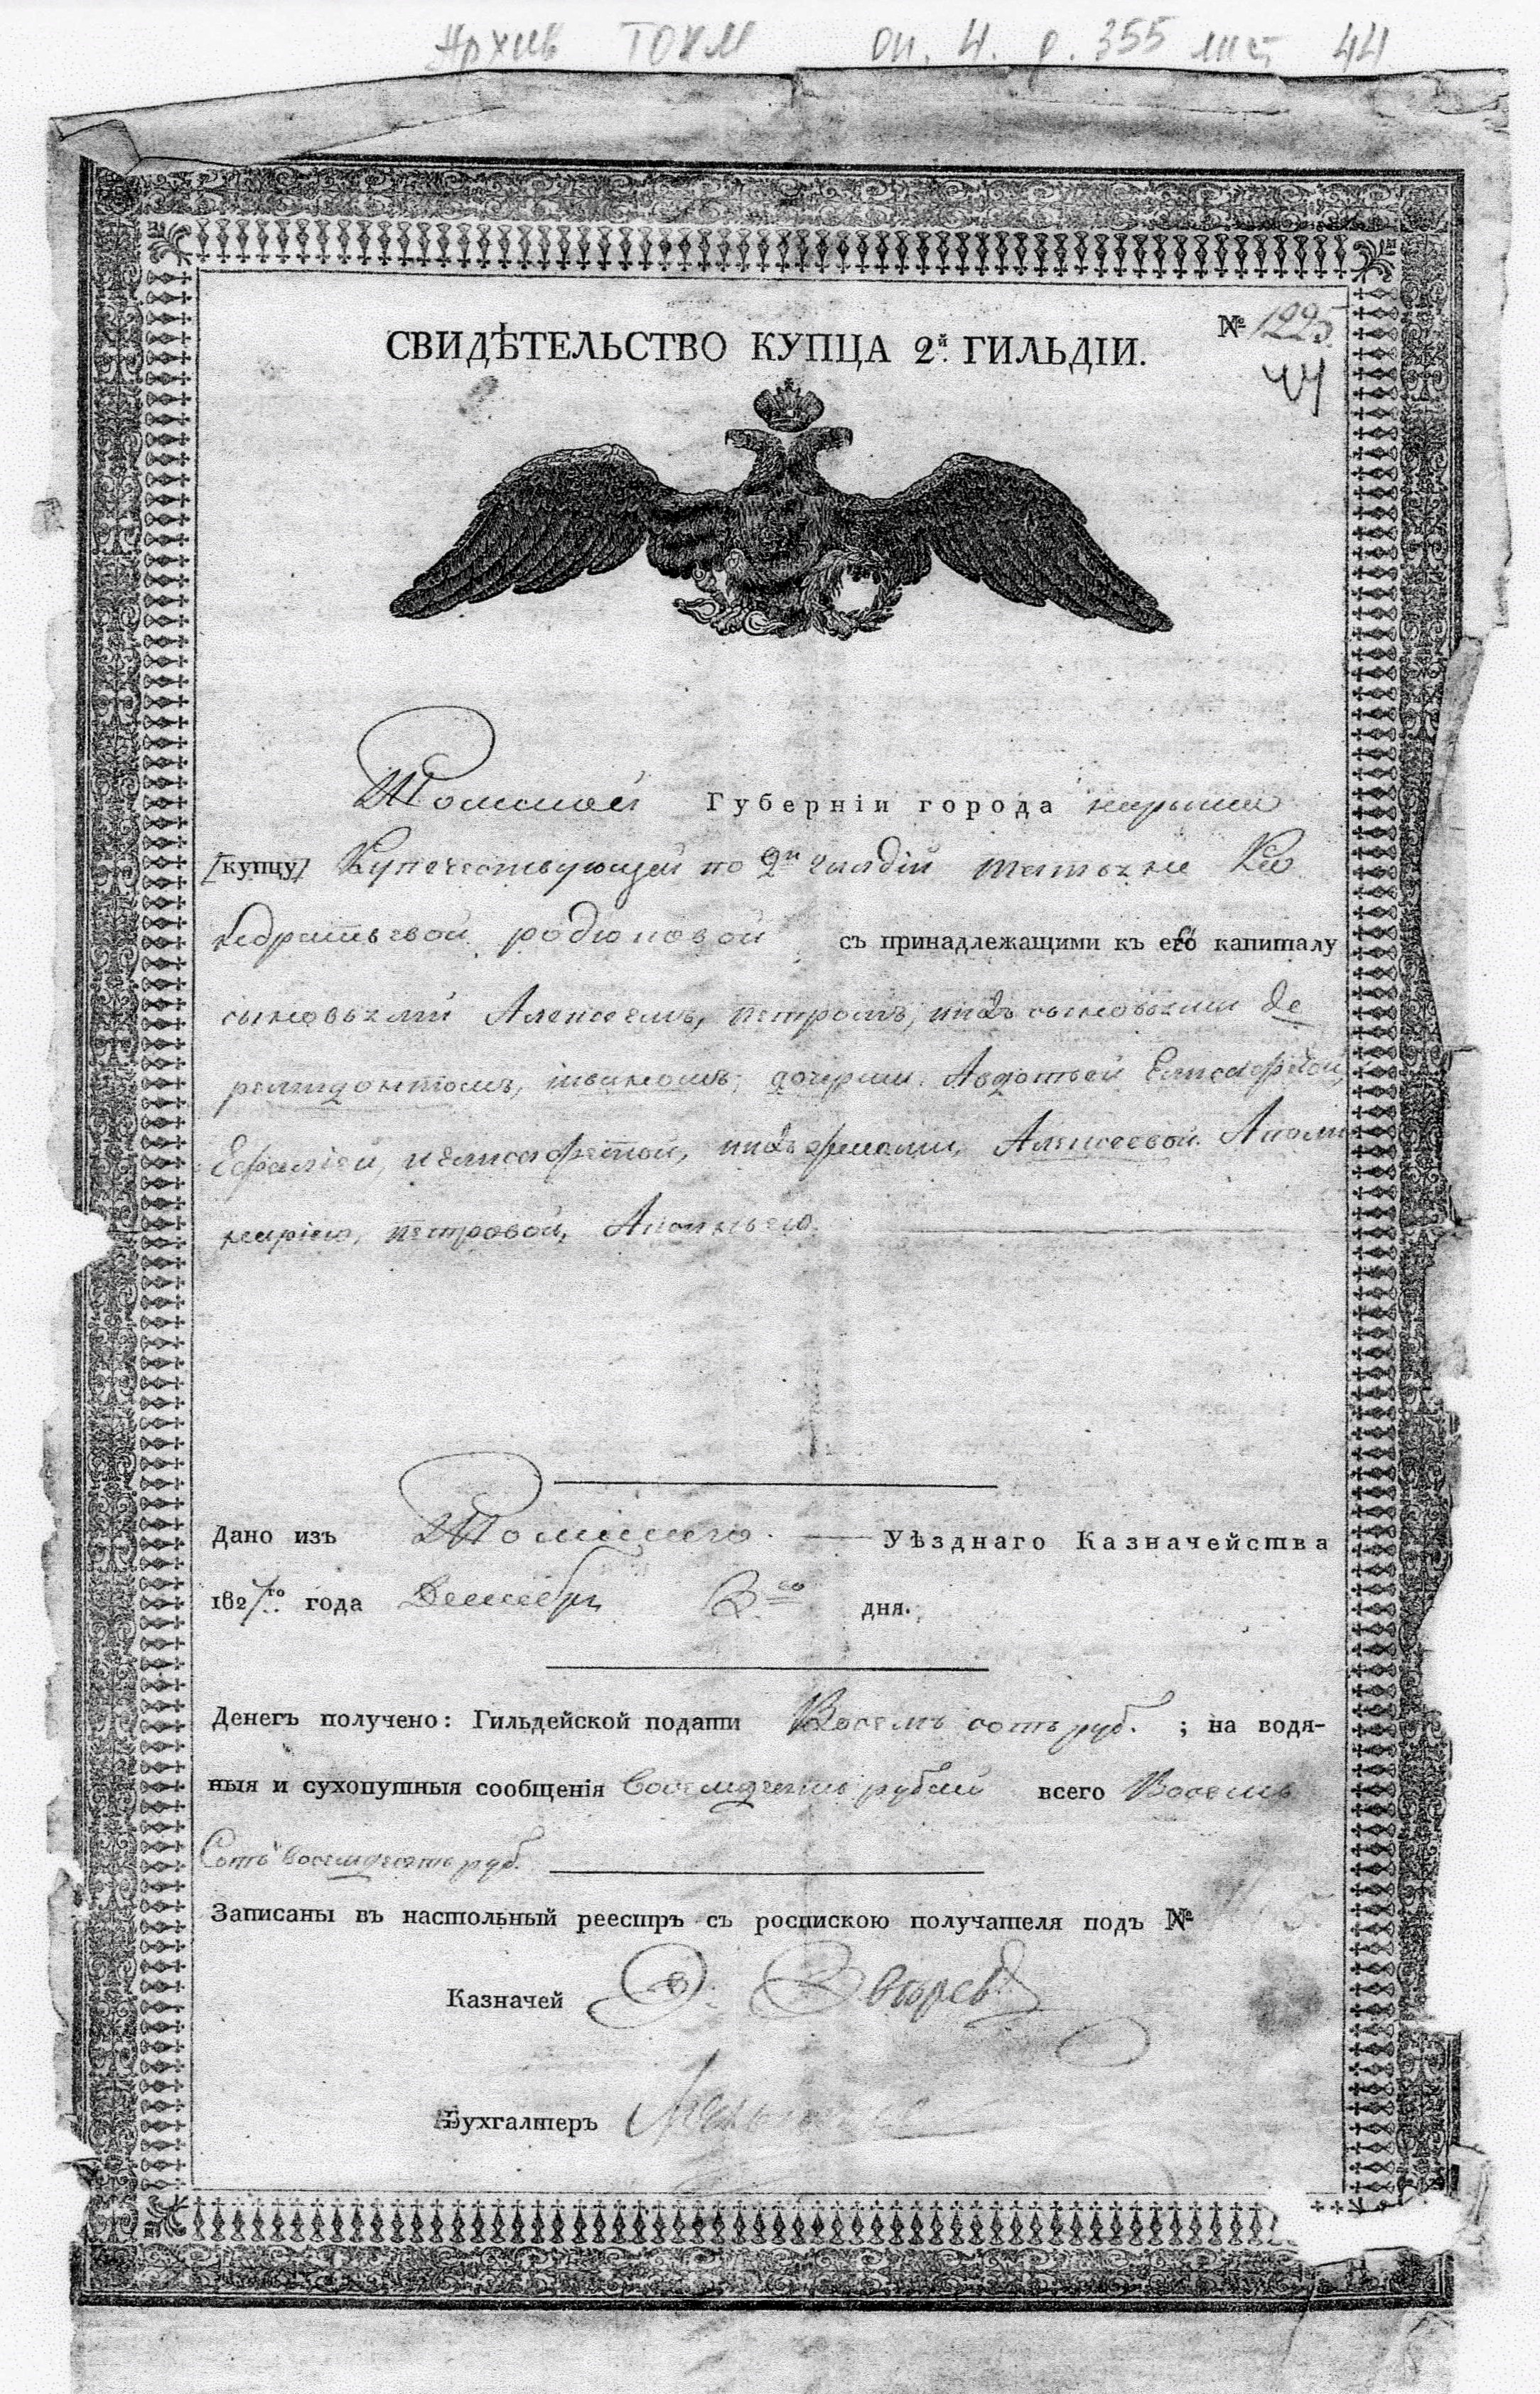 Архив ТОКМ оп. 4. д. 355 лист 44
№ 1225.
СВИДѢТЕЛЬСТВО КУПЦА 2й ГИЛЬДІИ.
44
Томской Губерніи города нарыма
[купцу] Купечествующей по 2й гилдіи татьяне Ко
ндратьевой родюковой съ принадлежащими къ его капиталу
сыновьями Алексеемъ, петромъ, сыновьями де
иваномъ, дочерми Авдотьей Елисафетой,
елисафетой, Алексеевой Аполи
нариею, петровой,
Дано изъ Томскаго Уѣзднаго Казначейства
1827го года Декабря 3го дня.
Денегъ получено: Гильдейской подати Восемь сотъ руб. ; на водя-
ныя и сухопутныя сообщенія восемдесятъ рублей всего Восемь
Сотъ восемдесятъ руб.
Записаны въ настольный реестръ съ роспискою получателя подъ №
Казначей
Бухгалтеръ